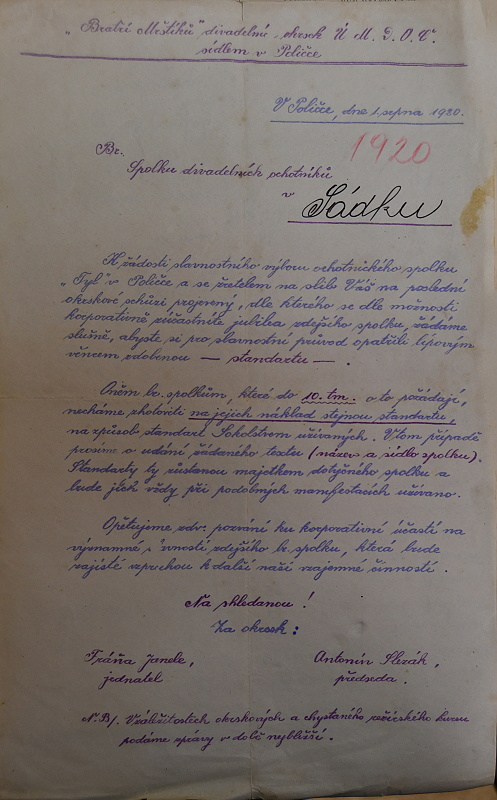 „Bratří Mrštíků" divadelní okrsek Ú. M. D. O. Č.
sídlem v Poličce
V Poličce, dne 1. srpna 1920.
1920
Br.
Spolku divadelních ochotníků
v
Sádku
K žádosti slavnostního výboru ochotnického spolku
„Tyl" v Poličce a se zřetelem na slib Váš na poslední
okrskové schůzi projevený, dle kterého se dle možnosti
korporativně zúčastníte jubilea zdejšího spolku, žádáme
slušně, abyste si pro slavnostní průvod opatřili lipovým
věncem zdobenou — standartu — .
Oněm br. spolkům, které do 10. tm. o to požádají,
necháme zhotoviti na jejich náklad stejnou standartu,
na způsob standart Sokolstvem užívaných. V tom případě
prosíme o udání žádaného textu (název a sídlo spolku).
Standarty ty zůstanou majetkem dotyčného spolku a
bude jich vždy při podobných manifestacích užíváno.
Opětujeme zdv. pozvání ku korporativní účasti na
významné slavnosti zdejšího br. spolku, která bude
zajisté vzpruhou k další naší vzájemné činnosti.
Na shledanou!
Za okrsek:
Fráňa Janele, Antonín Slezák,
jednatel předseda.
NB/. V záležitostech okrskových a chystaného režisérského kursu
podáme zprávy v době nejbližší.